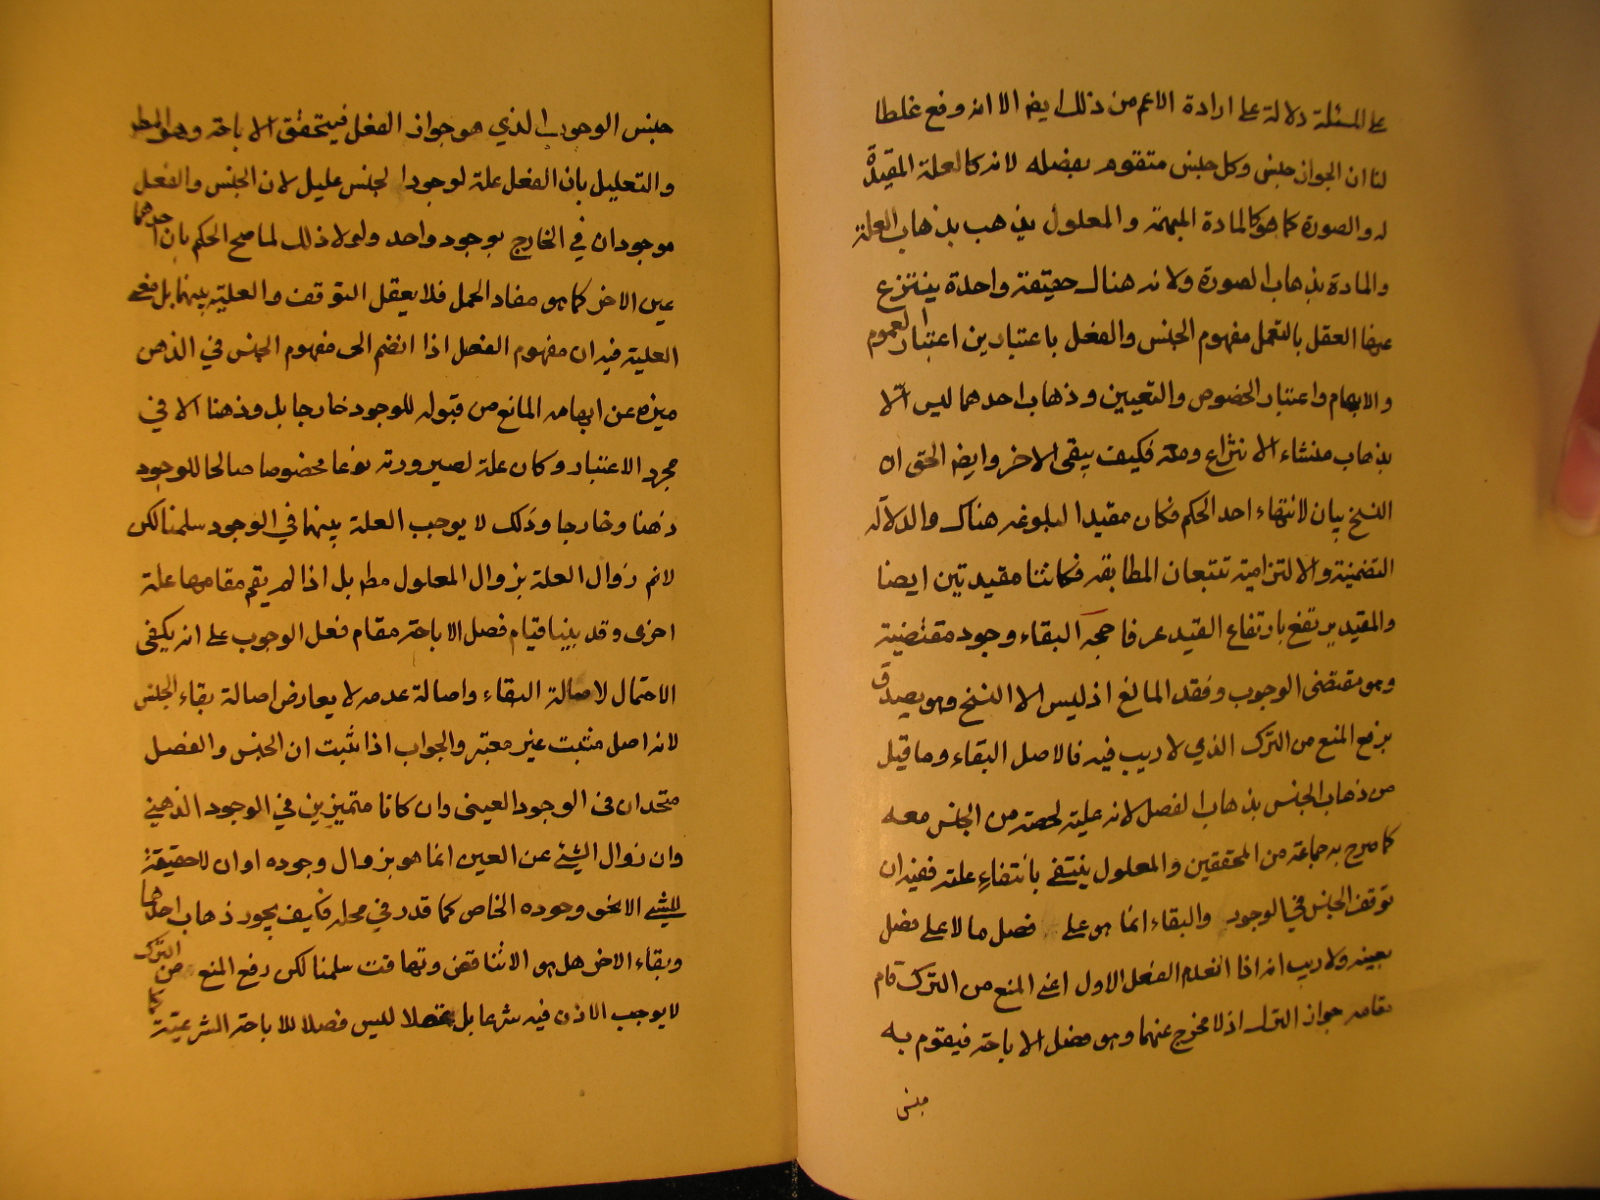 على المسئلة دلالة على ارادة الاعم من ذلك ايضا الا انه وقع غلطا
لنا ان الجواز جنس وكل جنس متقوم بفصله لانه كالعلة المقيدة
له والصورة كما هو كالمادة المبهمة والمعلول يذهب بذهاب العلة
والمادة بذهاب الصورة ولانه هناك حقيقة واحدة ينتزع
عنها العقل بالتعمل مفهوم الجنس والفصل باعتبارين اعتبار العموم
والابهام واعتبار الخصوص والتعيين وذهاب احدهما ليس الّا
بذهاب منشاء الانتزاع ومعه فكيف يبقى الاخر وايضا الحق ان
النسخ بيان لانتهاء احد الحكم فكان مقيدا لبلوغه هناك والدلالة
التضمنية والالتزامية تتبعان المطابقه فكانتا مقيدتين ايضا
والمقيد يرتفع بارتفاع القيد عرفا حجه البقاء وجود مقتضيته
وهو مقتضى الوجوب وفقد المانع اذ ليس الا النسخ وهو يصدق
برفع المنع من الترك الذي لا ريب فيه فالاصل البقاء وما قيل
من ذهاب الجنس بذهاب الفصل لانه علية لحصته من الجنس معه
كما صرح به جماعة من المحققين والمعلول ينتفى بانتفاء علته ففيه ان
توقف الجنس في الوجود والبقاء انما هو على فصل ما لا على فصل
بعينه ولا ريب انه اذا انعدم الفصل الاول اعني المنع من الترك قام
مقامه جواز الترك اذ لا مخرج عنهما وهو فصل الاباحة فيقوم به
جنس
جنس الوجوب الذي هو جواز الفعل فيتحقق الاباحة وهو المط
والتعليل بان الفصل علة لوجود الجنس عليل لان الجنس والفصل
موجودان في الخارج بوجود واحد ولولا ذلك لما صح الحكم بان احدهما
عين الاخر كما هو مفاد الحمل فلا يعقل التوقف والعلية بينهما بل معنى
العلية فيه ان مفهوم الفصل اذا انضم الى مفهوم الجنس في الذهن
ميزه عن ابهامه المانع من قبوله للوجود خارجا بل وذهنا الا في
مجرد الاعتبار وكان علة لصيرورته نوعا مخصوصا صالحا للوجود
ذهنا وخارجا وذلك لا يوجب العلة بينهما في الوجود سلمنا لكن
لانم زوال العلة بزوال المعلول مط بل اذا لم يقم مقامها علة
اخرى وقد بينا قيام فصل الاباحة مقام فصل الوجوب على انه يكفى
الاحتمال لاصالة البقاء واصالة عدمه لا يعارض اصالة بقاء الجنس
لانه اصل مثبت غير معتبر والجواب اذا ثبت ان الجنس والفصل
متحدان في الوجود العيني وان كانا متميزين في الوجود الذهني
وان زوال الشئ عن العين انما هو بزوال وجوده او ان لا حقيقة
للشئ الا نحو وجوده الخاص كما قدر في محله فكيف يجوز ذهاب احدهما
وبقاء الاخر هل هو الا تناقض وتهافت سلمنا لكن رفع المنع من الترك
لا يوجب الاذن فيه شرعا بل عقلا ليس فصلا للاباحة الشرعية كما